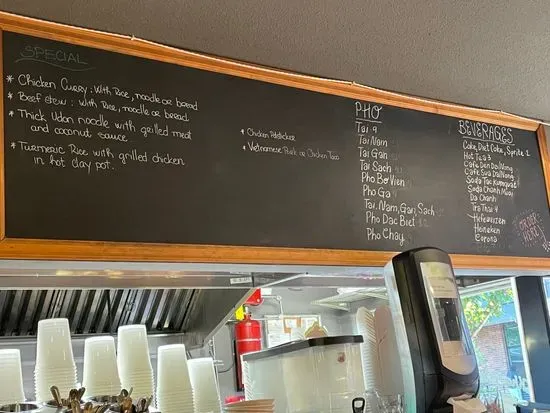 SPECIAL
* Chicken Curry: with Rice, noodle or bread
* Beef stew: with Rice, noodle or bread
* Thick Udon noodle with grilled meat
and coconut sauce.
* Turmeric Rice with grilled chicken
in hot clay pot.
* Chicken Potsticker
* Vietnamese Pork or Chicken Taco
PHO
Tai 9
Tai Nam
Tai Gan
Tai Sach
Pho Bo Vien
Pho Ga
Tai, Nam, Gan, Sach
Pho Dac Biet
Pho Chay
BEVERAGES
Coke, Diet Coke, Sprite 2
Hot Tea 3
Cafe Den Da/Nong
Cafe Sua Da/Nong
Soda Tac Kumquat
Soda Chanh Muoi
Da Chanh
Tra Thai 4
Hefeweizen
Heineken
Corona
ORDER
HERE